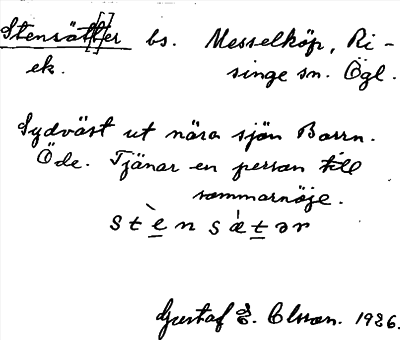 Stensätt[t]er bs. Messelköp, Ri-
ek. singe sn. Ögl.
Sydväst ut nära sjön Borrn.
Öde. Tjänar en person till
sommarnöje.
stènsǽtər
Gustaf E. Olsson. 1926.